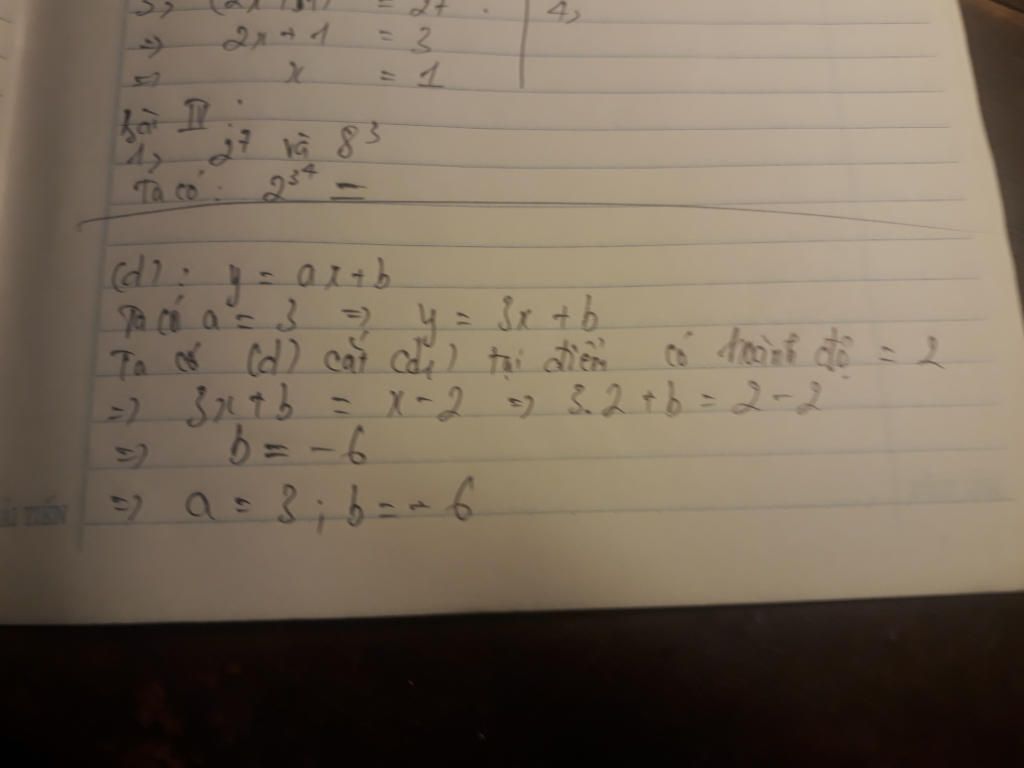 3, (2x+1)³ = 27. 4,
=> 2x+1 = 3
=> x = 1
bài IV:
1, 2⁷ và 8³
Ta có: 2³⁴ =
(d): y = ax+b
Ta có a = 3 => y = 3x + b
Ta có (d) cắt (d₁) tại điểm có hoành độ = 2
=> 3x+b = x-2 => 3.2+b = 2-2
=> b = -6
=> a = 3; b = -6